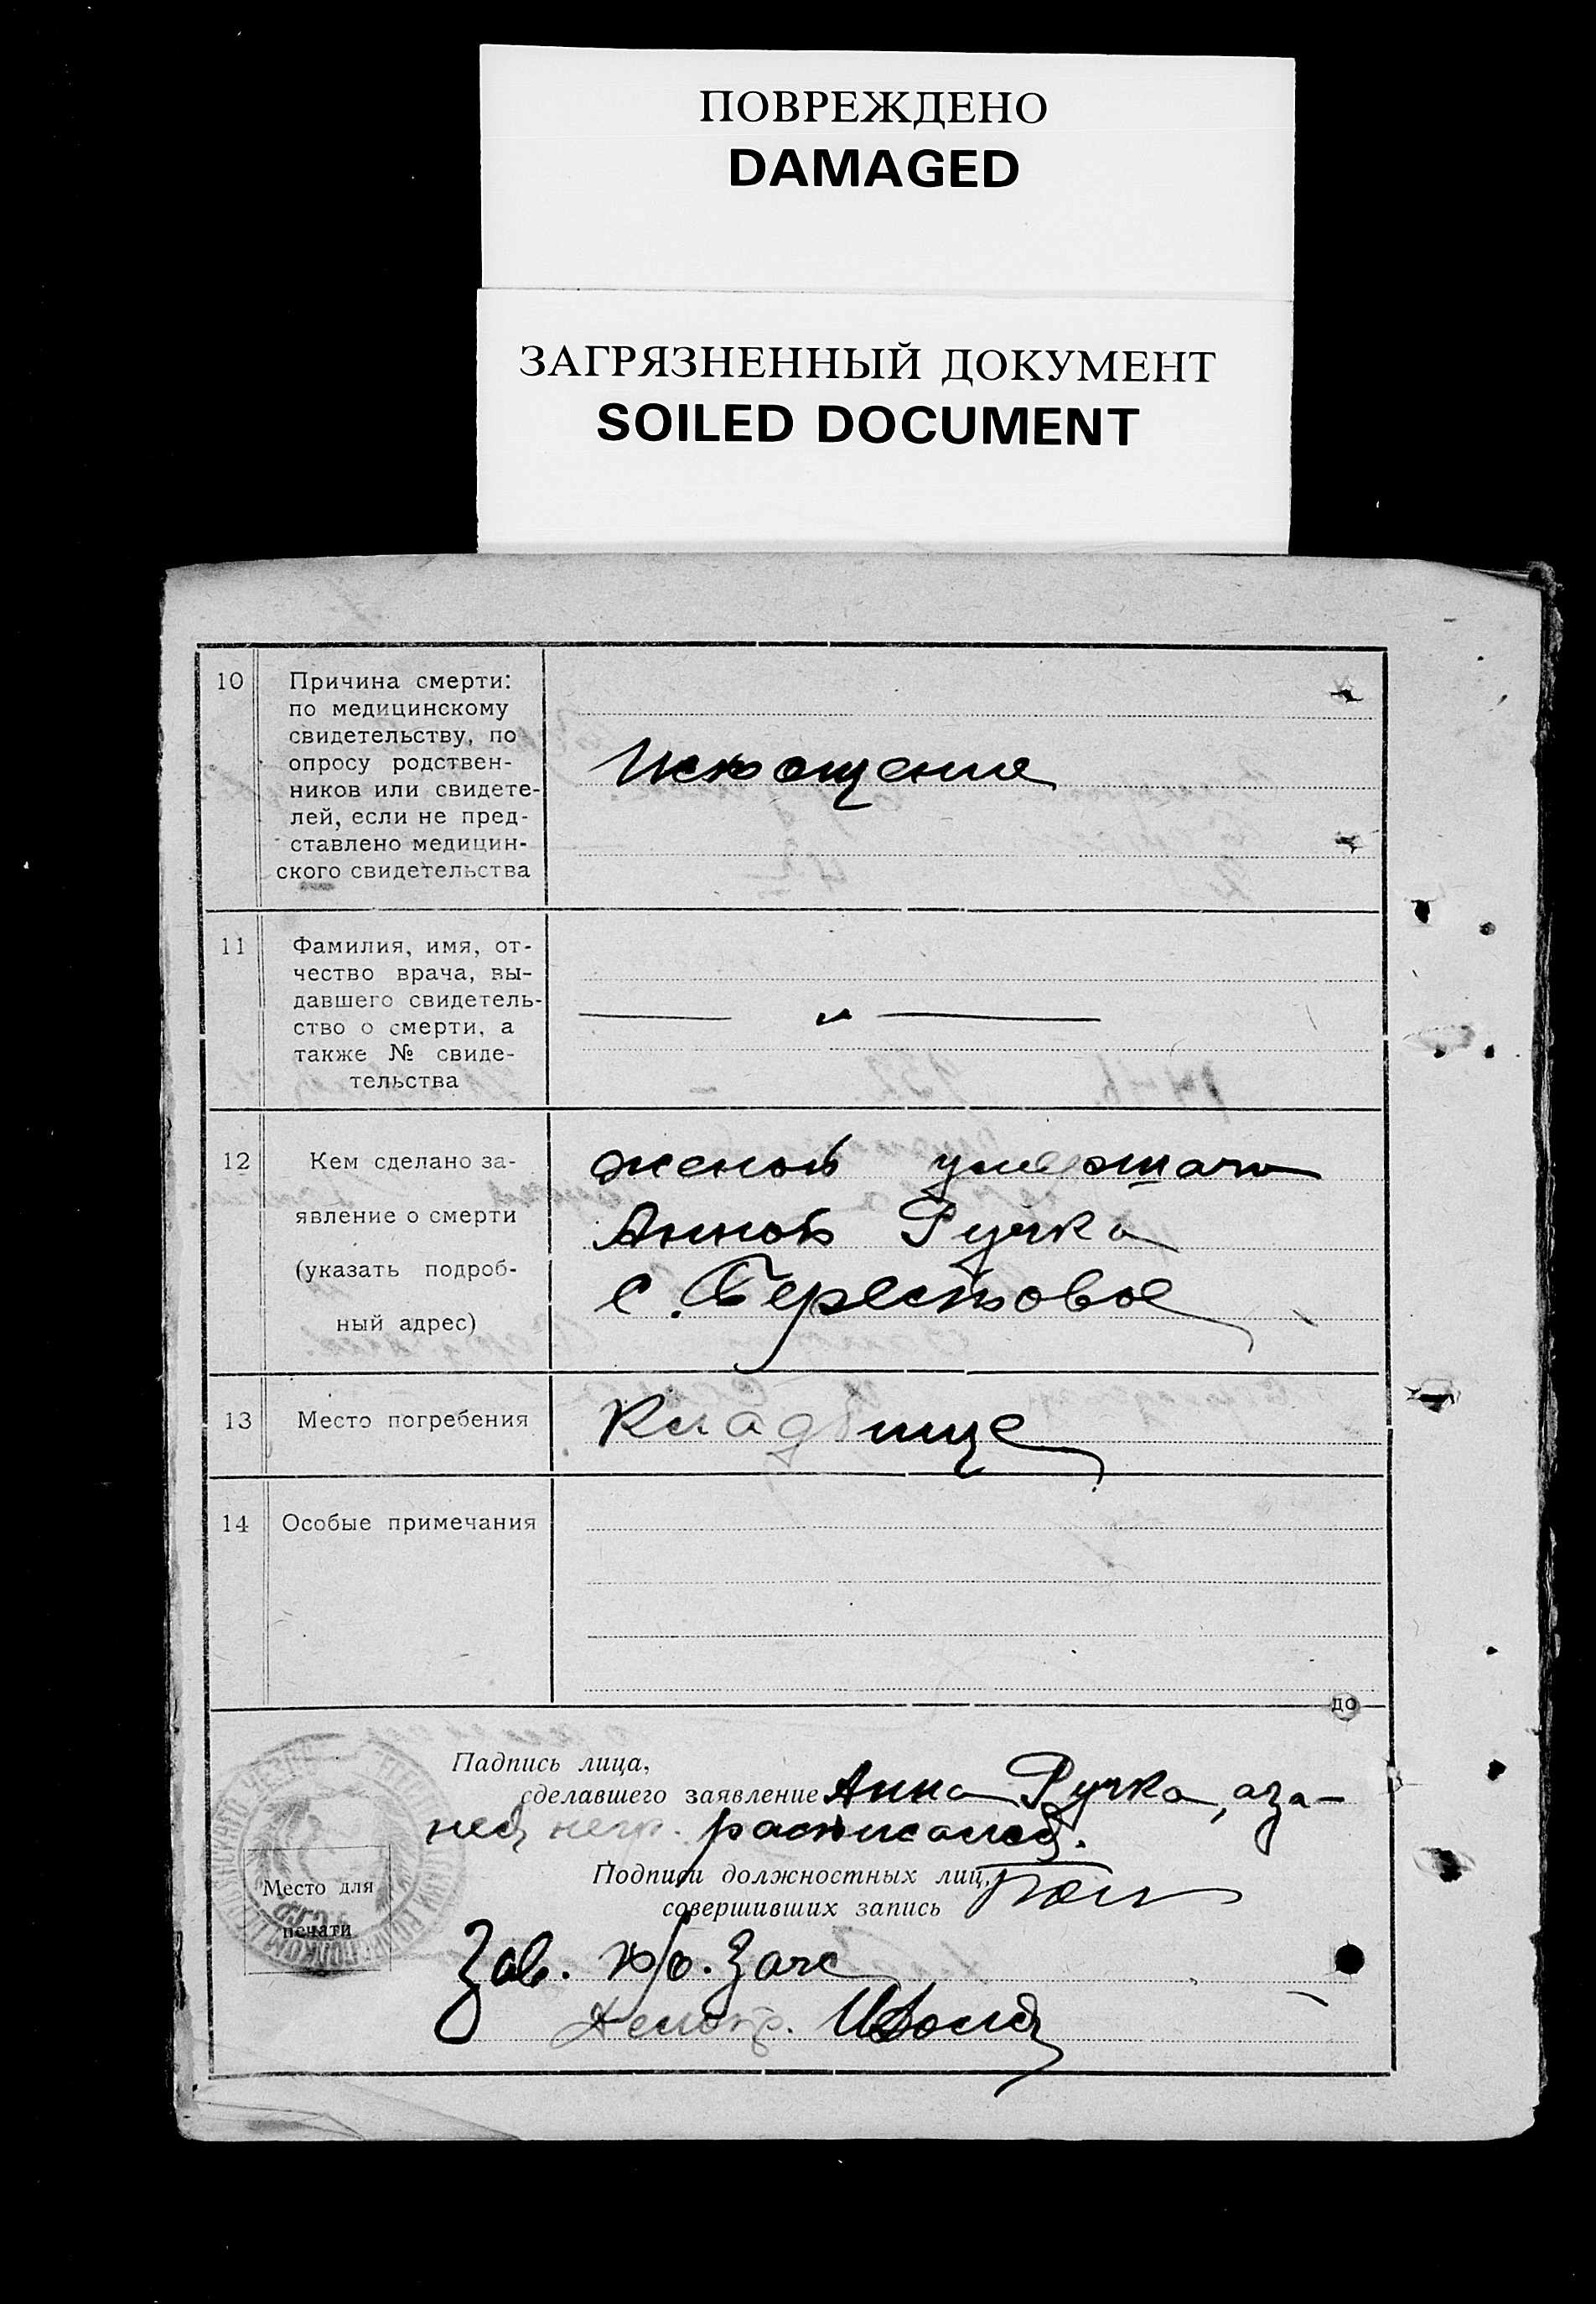 ПОВРЕЖДЕНО
DAMAGED
ЗАГРЯЗНЕННЫЙ ДОКУМЕНТ
SOILED DOCUMENT
10 Причина смерти:
по медицинскому
свидетельству, по
опросу родствен-
ников или свидете-
лей, если не пред-
ставлено медицин-
ского свидетельства
Исхощение
11 Фамилия, имя, от-
чество врача, вы-
давшего свидетель-
ство о смерти, а
также № свиде-
тельства
— " —
12 Кем сделано за-
явление о смерти
(указать подроб-
ный адрес)
женой умершаго
Анной Ручка
с. Берестовое
13 Место погребения
Кладбище
14 Особые примечания
до
Падпись лица,
сделавшего заявление Анна Ручка, а за-
расписался.
Подписи должностных лиц,
совершивших запись
Место для
печати
Зав. п/о. Загс